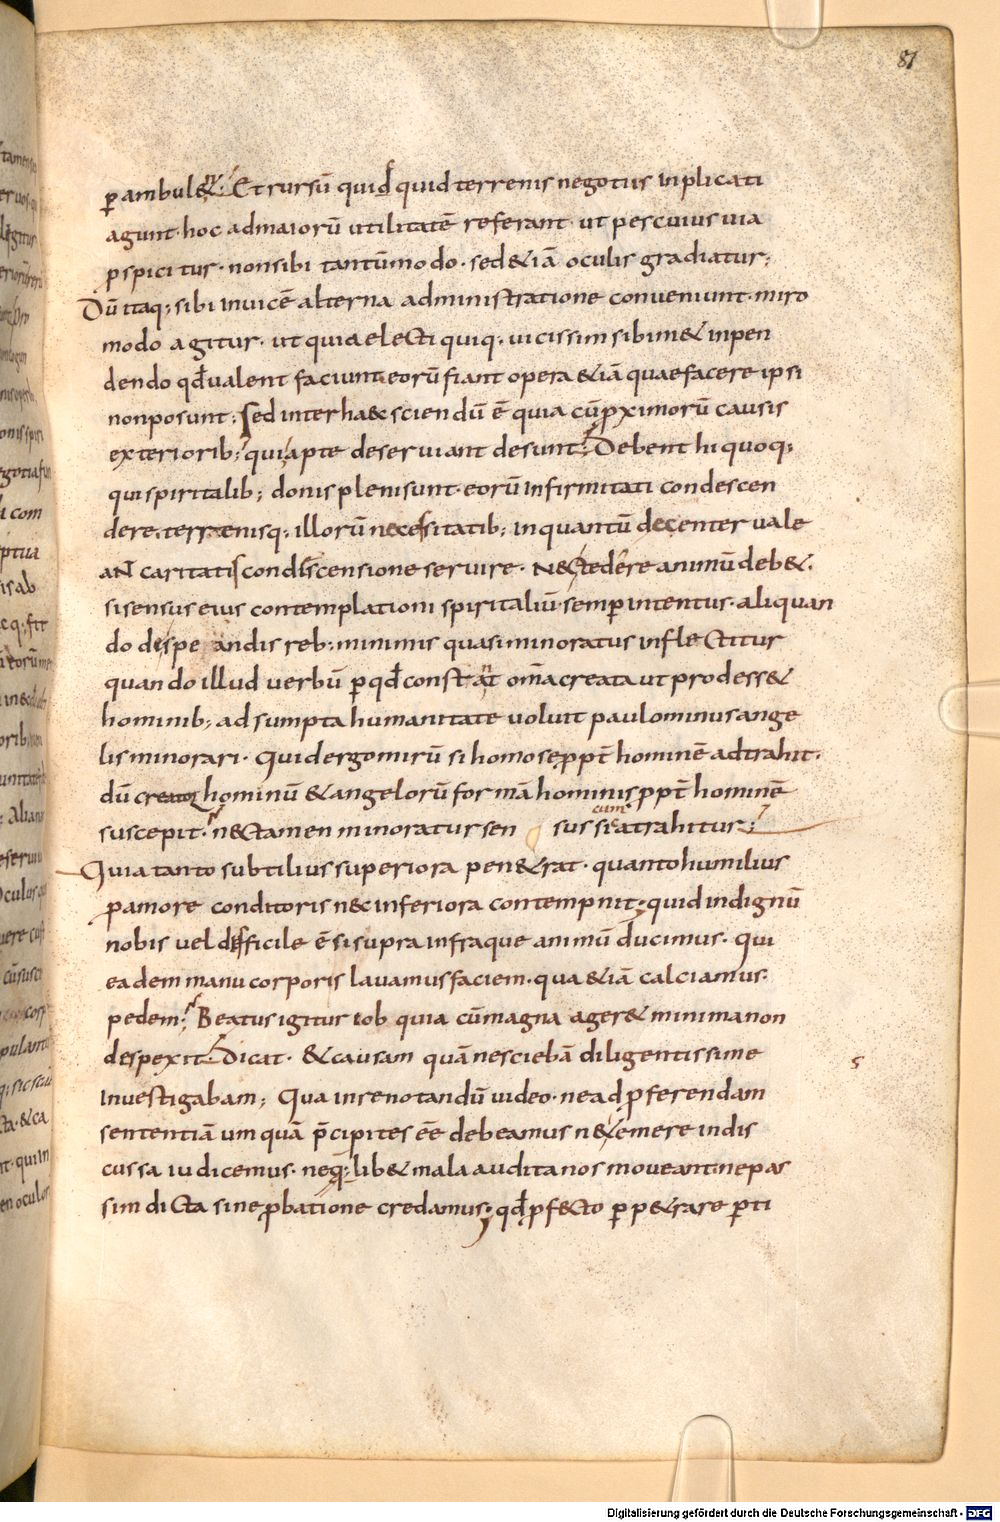 81
ꝑambul&; Et rursū quidquid terrenis negotiis inplicati
agunt· hoc admaiorū utilitatē referant· ut pes cuius uia
ꝑspicitur· nonsibi tantūmodo· sed&iā oculis gradiatur;
Dū itaq; sibi inuicē alterna administratione conueniunt· miro
modo agitur· ut quia electi quiq; uicissim sibim& inpen
dendo qd̄ ualent faciunt· eorū fiant opera &iā quae facere ipsi
nonposunt; Sed inter ha&c sciendū ē quia cū ꝓximorū causis
exteriorib; qui apte deseruiant desunt; Debent hi quoq;
qui spiritalib; donis plenisunt· eorū infirmitati condescen
dere· terrenisq; illorū necessitatib; inquantū decenter uale
aNt caritatis condiscensione seruire· N&c tedere animū deb&·
sisensus eius contemplationi spiritaliū semꝑ intentus· aliquan
do dispe andis reb; minimis quasi minoratus inflectitur
quando illud uerbū ꝑ qd̄ constant om̄a creata ut prodess&
hominib; adsumpta humanitate uoluit paulominus ange
lis minorari· Quid ergo mirū si homo se ꝓpt̄ hominē adtrahit·
dū creator hominū &angelorū formā hominis ꝓpt̄ hominē
suscepit· n&tamen minoratur sen sus si atrahitur;
cum
Quia tanto subtilius superiora pen&rat· quanto humilius
ꝓ amore conditoris n&c inferiora contempnit; quid indignū
nobis uel difficile ē si supra infraque animū ducimus· qui
eadem manu corporis lauamus faciem· qua &iā calciamus
pedem; Beatus igitur iob quia cū magna ager& minima non
despexit Dicat· &causam quā nesciebā diligentissime
inuestigabam; Qua in re notandū uideo· ne ad ꝓferendam
5
sententiā umquā p̄cipites eē debeamus n& temere indis
cussa iudicemus· neq; lib& mala audita nos moueant· ne pas
sim dicta sine ꝓbatione credamus; qd̄ ꝓf&cto ꝑp&rare ꝑti
Digitalisierung gefördert durch die Deutsche Forschungsgemeinschaft - DFG